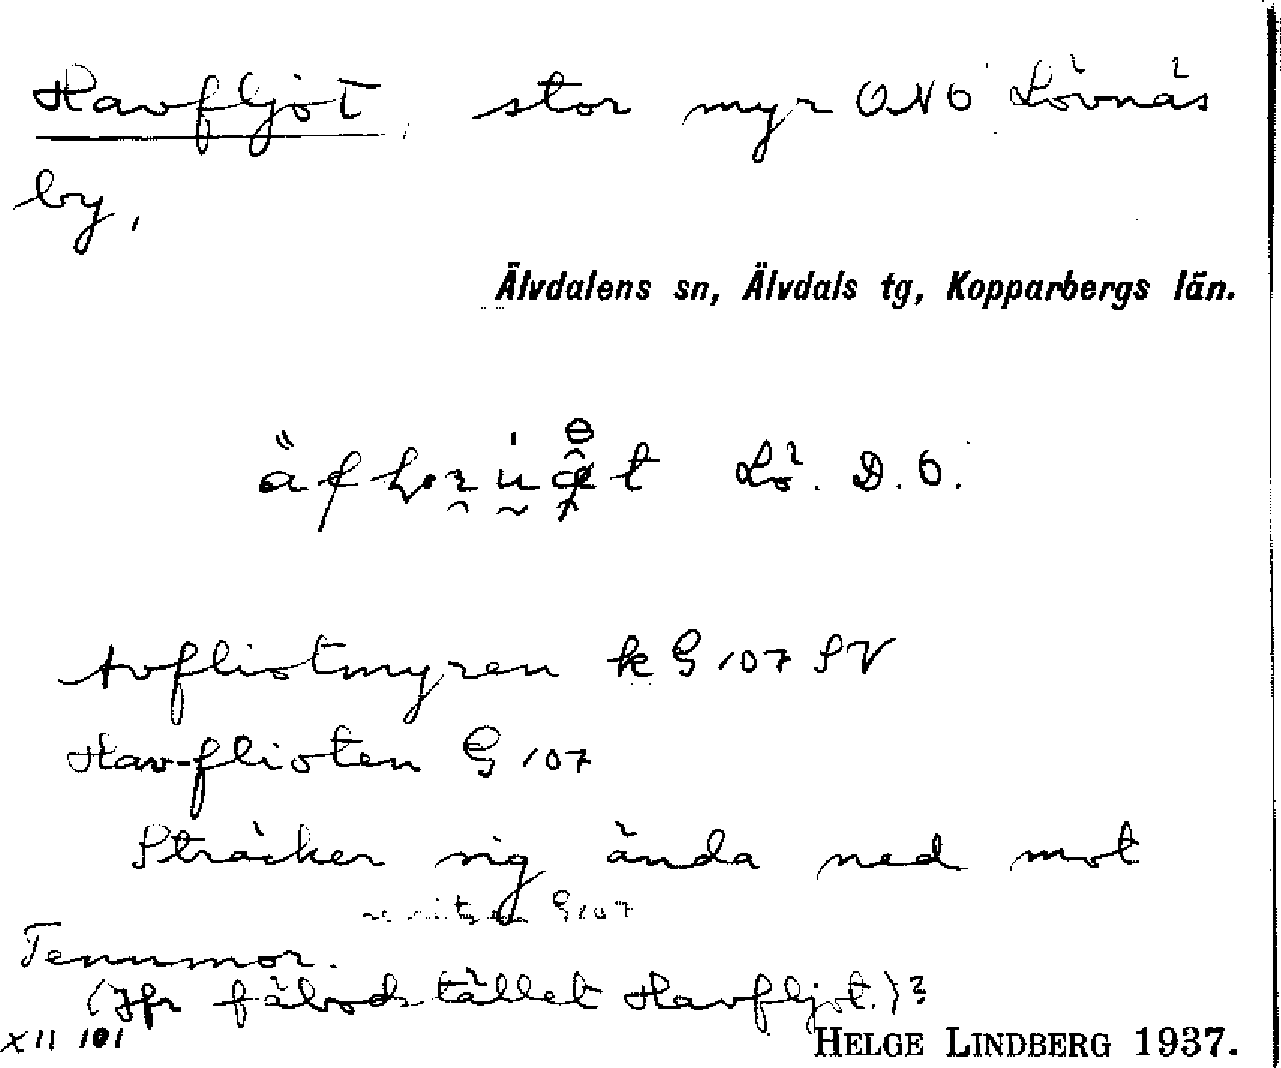 Havfljot, stor myr ONO Lövnäs
by,
Älvdalens sn, Älvdals tg, Kopparbergs län.
Lö. D. O.
Avfliotmyren k G 107 SV
Hav-flioten G 107
Sträcker sig ända ned mot
G 107
Tennmor.
(Jfr fäbodstället Havfljot.)?
XII 101
HELGE LINDBERG 1937.